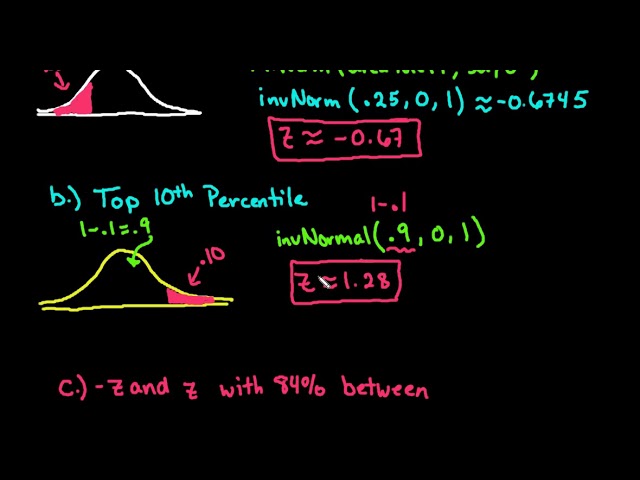 invNorm (.25, 0, 1) ≈ -0.6745
z ≈ -0.67
b.) Top 10th Percentile
1-.1
1-.1=.9
invNormal(.9, 0, 1)
.10
z ≈ 1.28
c.) -z and z with 84% between